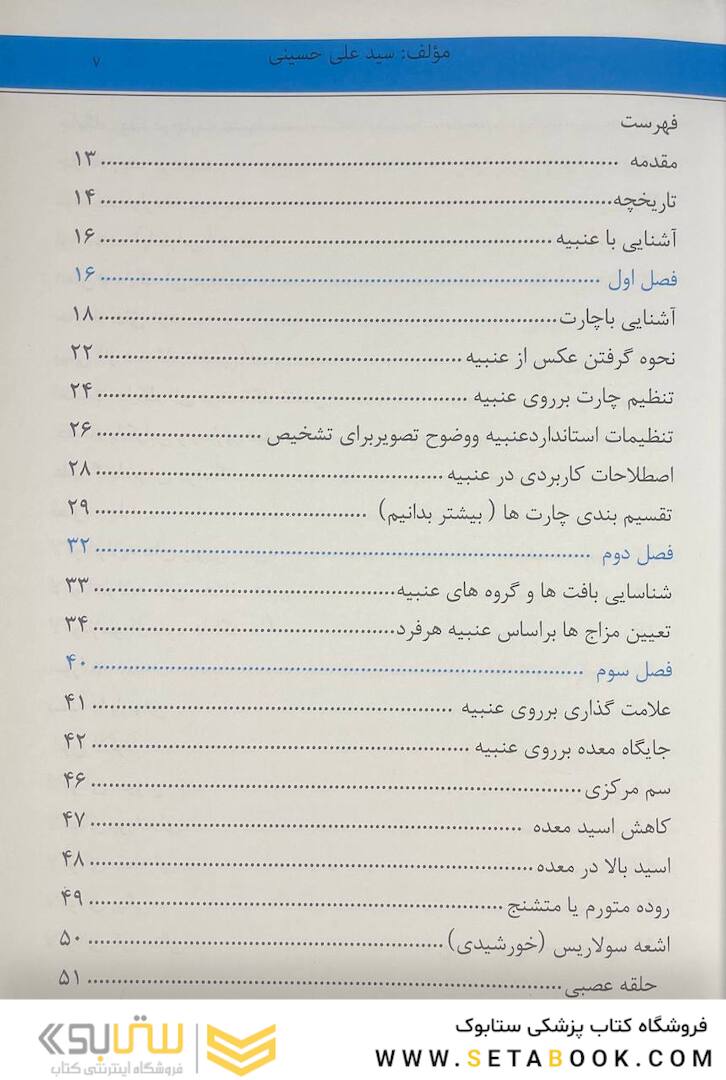 مؤلف: سید علی حسینی ۷
فهرست
مقدمه ۱۳
تاریخچه ۱۴
آشنایی با عنبیه ۱۶
فصل اول ۱۶
آشنایی باچارت ۱۸
نحوه گرفتن عکس از عنبیه ۲۲
تنظیم چارت برروی عنبیه ۲۴
تنظیمات استانداردعنبیه ووضوح تصویربرای تشخیص ۲۶
اصطلاحات کاربردی در عنبیه ۲۸
تقسیم بندی چارت ها ( بیشتر بدانیم) ۲۹
فصل دوم ۳۲
شناسایی بافت ها و گروه های عنبیه ۳۳
تعیین مزاج ها براساس عنبیه هرفرد ۳۴
فصل سوم ۴۰
علامت گذاری برروی عنبیه ۴۱
جایگاه معده برروی عنبیه ۴۲
سم مرکزی ۴۶
کاهش اسید معده ۴۷
اسید بالا در معده ۴۸
روده متورم یا متشنج ۴۹
اشعه سولاریس (خورشیدی) ۵۰
حلقه عصبی ۵۱
فروشگاه کتاب پزشکی ستابوک
WWW.SETABOOK.COM
ستابوک
فروشگاه اینترنتی کتاب